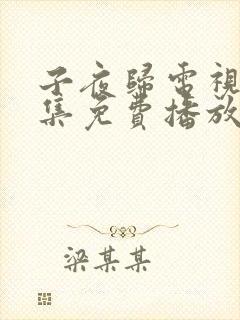 子夜歸電視
集免費播放
梁某某